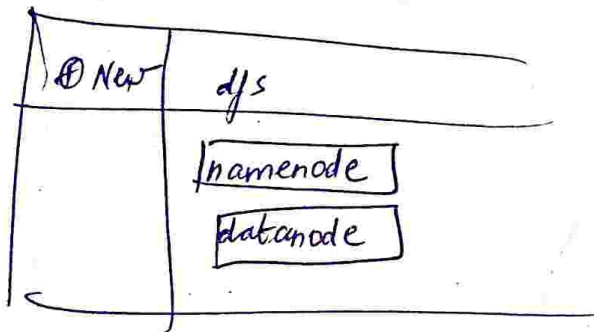 ⊕ New dfs
namenode
datanode